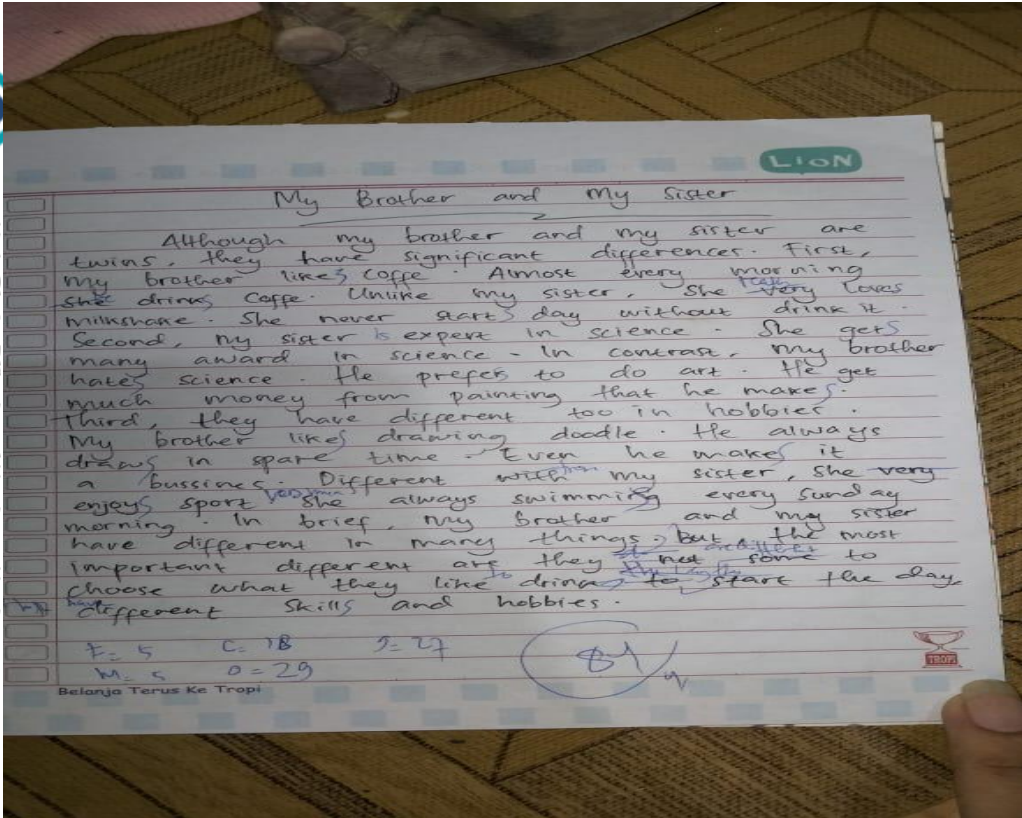 LION
My Brother and My Sister
Although my brother and my sister are
twins, they have significant differences. First,
my brother likes coffe. Almost every morning
she drinks coffe. Unlike my sister, she very loves
milkshake. She never starts day without drink it.
Second, my sister is expert in science. She gets
many award in science. In contrast, my brother
hates science. He prefers to do art. He get
much money from painting that he makes.
Third, they have different too in hobbies.
My brother likes drawing doodle. He always
draws in spare time. Even he makes it
a bussines. Different with from my sister, she very
enjoys sport very much she always swimming every sunday
morning. In brief, my brother and my sister
have different in many things, but the most
important different are they not same to
choose what they like to drink to start the day,
have different skills and hobbies.
F= 5 C= 18 J= 27
M= 5 O= 29
81
TROPI
Belanja Terus Ke Tropi